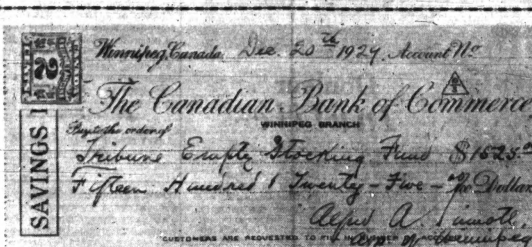 Winnipeg, Canada Dec 20th 1929 Account No
2
The Canadian Bank of Commerc
WINNIPEG BRANCH
Pay to the order of
Tribune Empty Stocking Fund $1525.00
Fifteen Hundred & Twenty-Five - Dollar
Alfred A.
SAVINGS
CUSTOMERS ARE REQUESTED TO